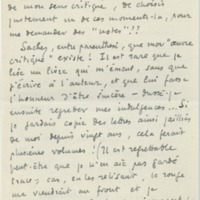 de mon sens critique, de choisir
justement un de ces moments-là, pour
me demander des "notes"!!
Sachez, entre parenthèse, que mon "œuvre
critique" existe! Il est rare que je
lise un livre qui m'émeut, sans que
j'écrive à l'auteur, et que lui fasse
l'honneur d'être sincère — dussé-je
ensuite regretter mes indulgences... Si
je gardais copie des lettres ainsi jaillies
de moi depuis vingt ans, cela ferait
plusieurs volumes! Il est regrettable
peut-être que je n'en aie pas gardé
car, en les relisant, le rouge
me viendrait au front et je